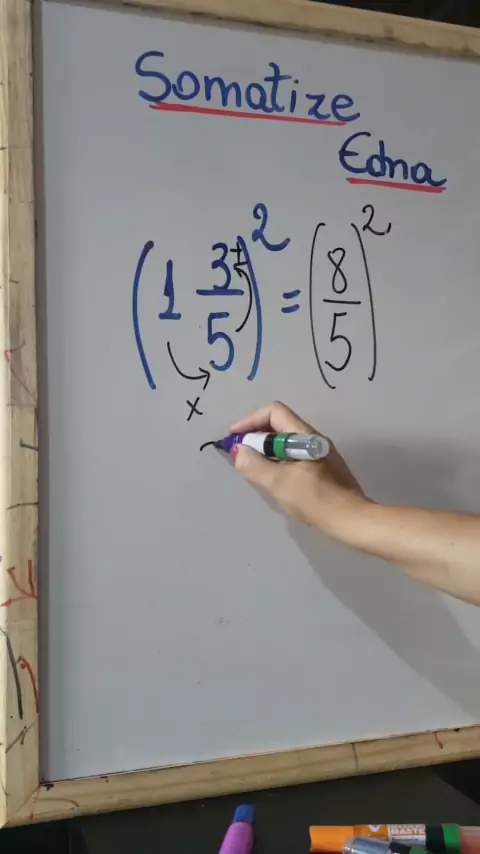 Somatize
Edna
(1 3/5)² = (8/5)²
+
x